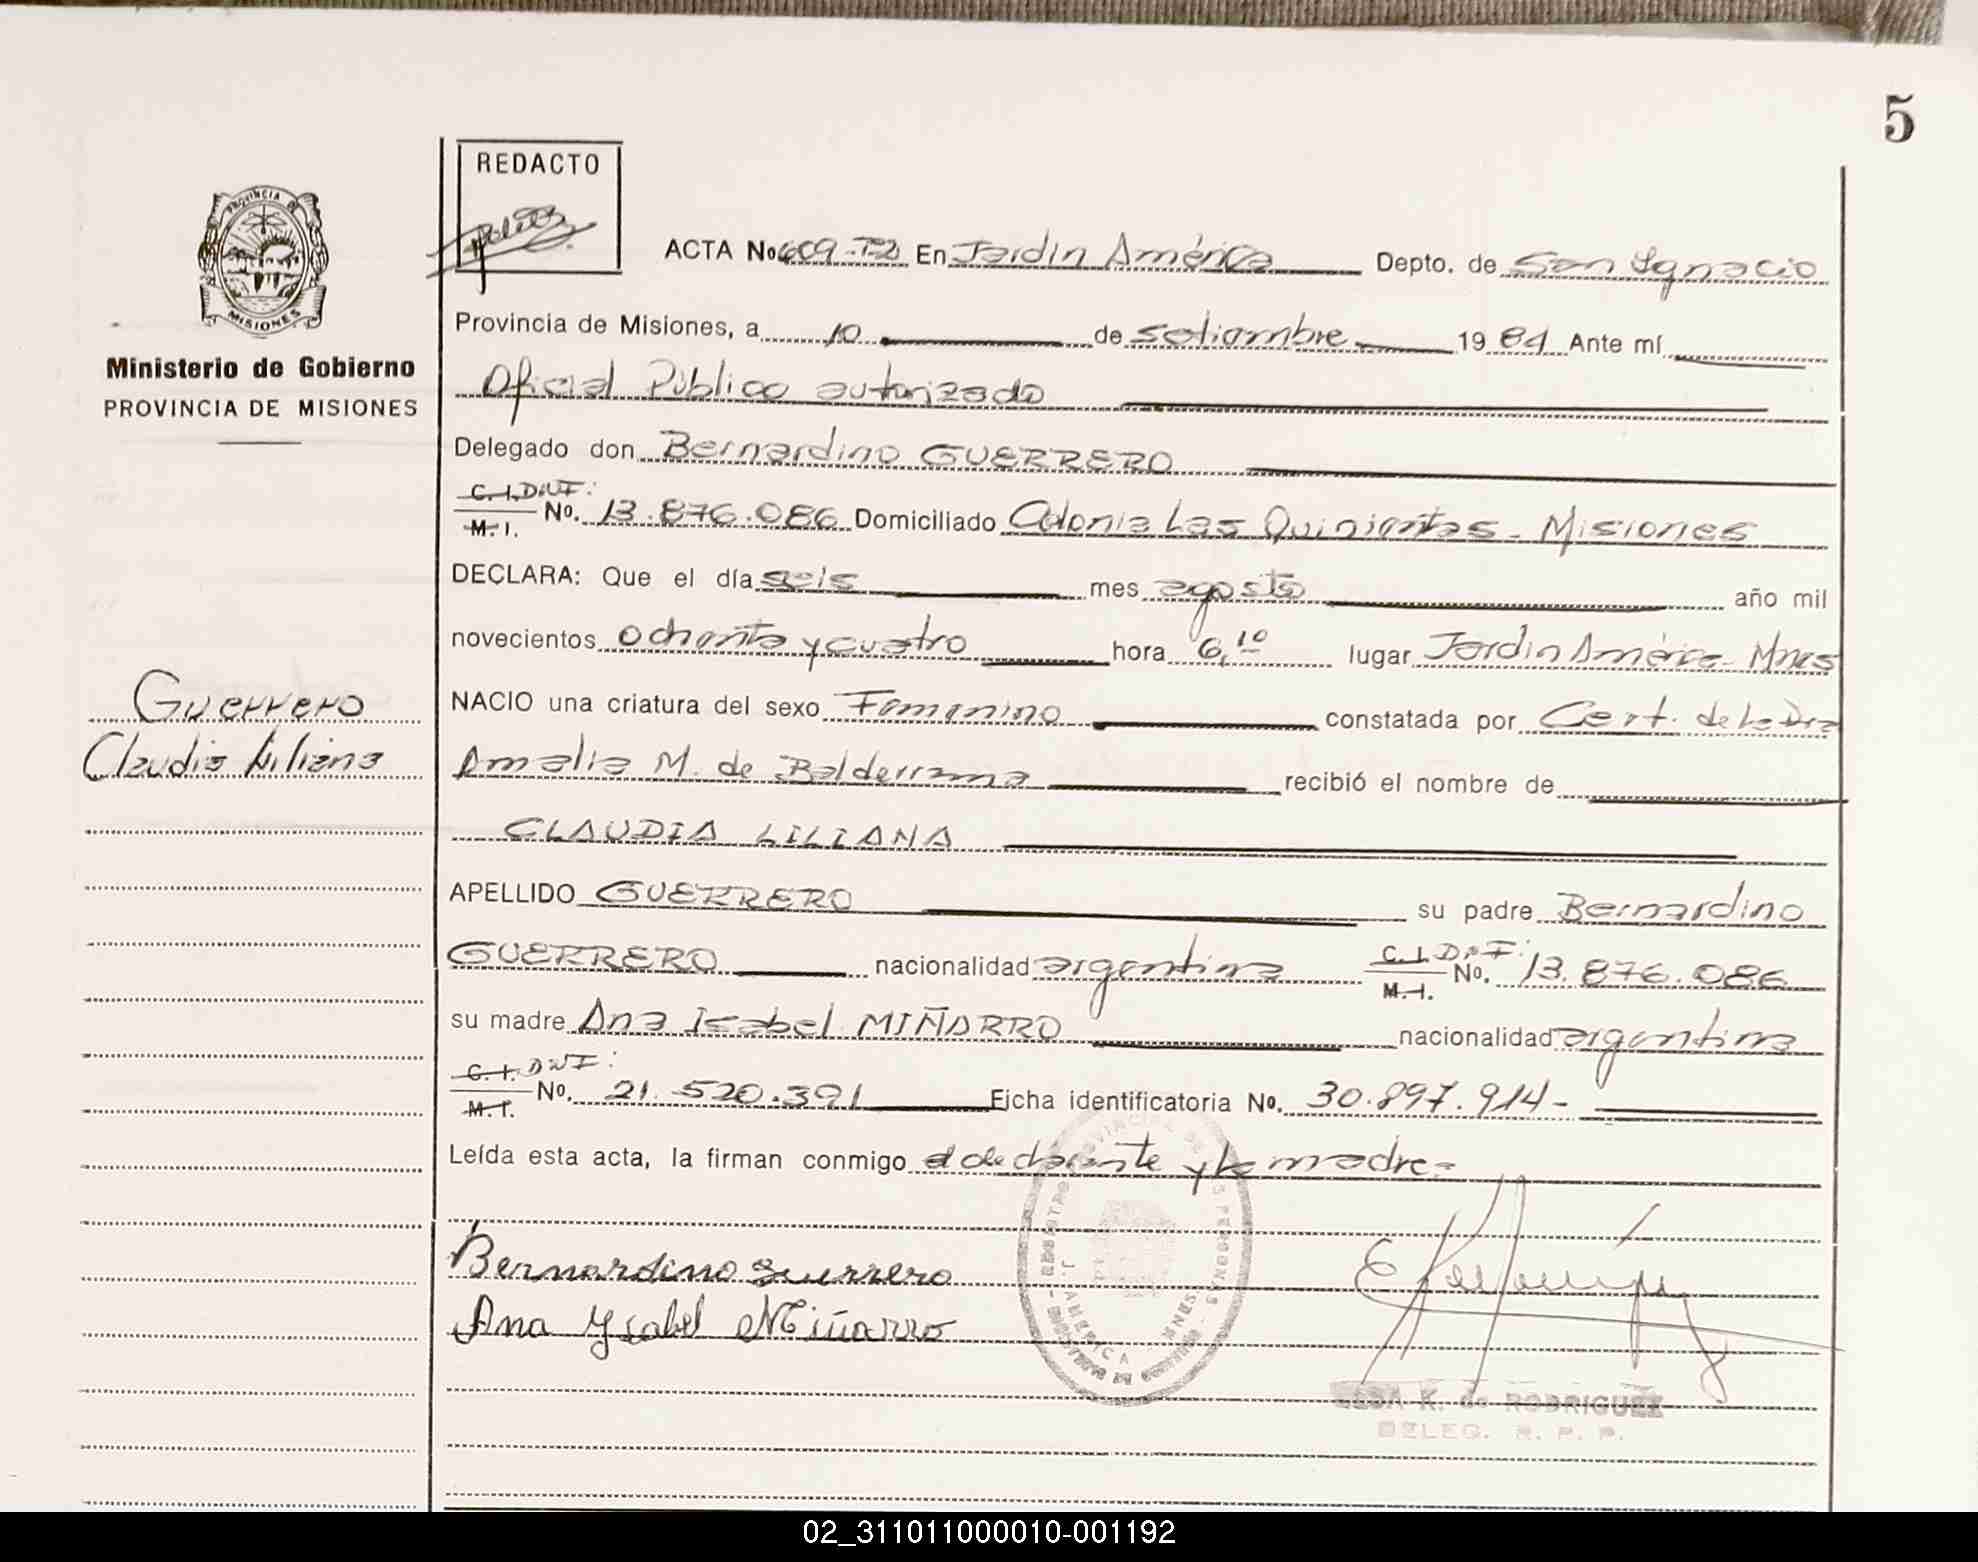 5
REDACTO
PROVINCIA DE
MISIONES
Ministerio de Gobierno
PROVINCIA DE MISIONES
ACTA No 609-T2 En Jardín América Depto. de San Ignacio
Provincia de Misiones, a 10 de setiembre 1984 Ante mí
Oficial Público autorizado
Delegado don Bernardino GUERRERO
C.I. DNI: M.I. No. 13.876.086 Domiciliado Colonia Las Quinientas - Misiones
DECLARA: Que el día seis mes agosto año mil
novecientos ochenta y cuatro hora 6,10 lugar Jardín América - Mnes
NACIO una criatura del sexo Femenino constatada por Cert. de la Dra
Amalia M. de Balderrama recibió el nombre de
CLAUDIA LILIANA
APELLIDO GUERRERO su padre Bernardino
GUERRERO nacionalidad argentina C.I. DNI: M.I. No. 13.876.086
su madre Ana Isabel MIÑARRO nacionalidad argentina
C.I. DNI: M.I. No. 21.520.391 Ficha identificatoria No. 30.897.914-
Leída esta acta, la firman conmigo el declarante y la madre-
Guerrero
Claudia Liliana
Bernardino Guerrero
Ana Ysabel Miñarro
J. AMERICA MNES.
K. de RODRIGUEZ
DELEG. R. P. P.
02_311011000010-001192